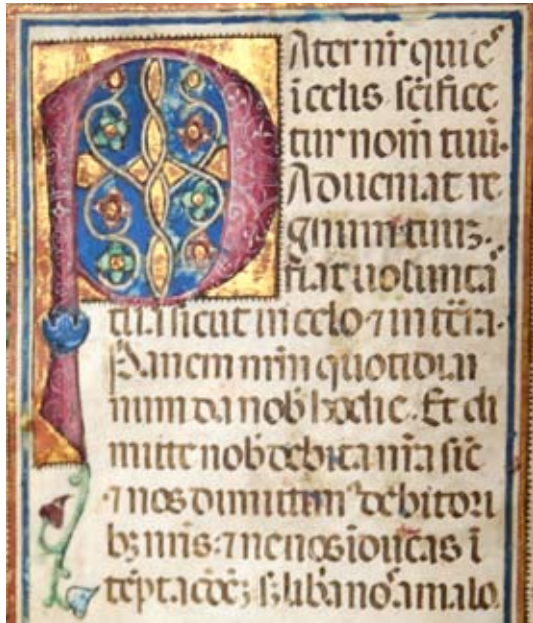 Pater nr̄ qui es
ī celis. sc̄ifice
tur nom̄ tuū.
Adueniat re
gnum tuuꝫ.
fiat uolūnta
tua sicut in celo ⁊ in tr̄ra.
Panem nr̄m quotidia
num da nob̄ hodie. Et di
mitte nob̄ debita nr̄a sic̄
⁊ nos dimittimꝰ debitori
bꝫ nr̄is: ⁊ ne nos īducas ī
tēptac̄oēꝫ sꝫ lib̄a nos a malo